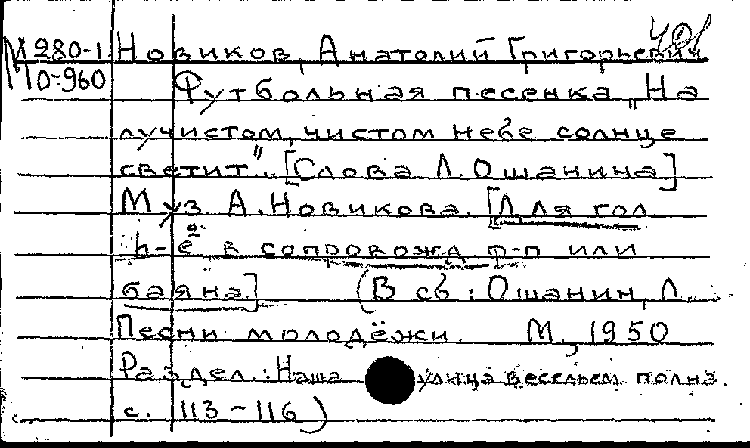 М 280-1 Новиков, Анатолий Григорьевич
МО-960 Футбольная песенка „На
лучистом, чистом небе солнце
светит". [Слова Л. Ошанина]
Муз А. Новикова. [Для гол
h-e² в сопровожд ф-п или
баяна] (В сб: Ошанин, Л.
Песни молодёжи. М, 1950
Раздел: Наша улица весельем полна.
с. 113-116)